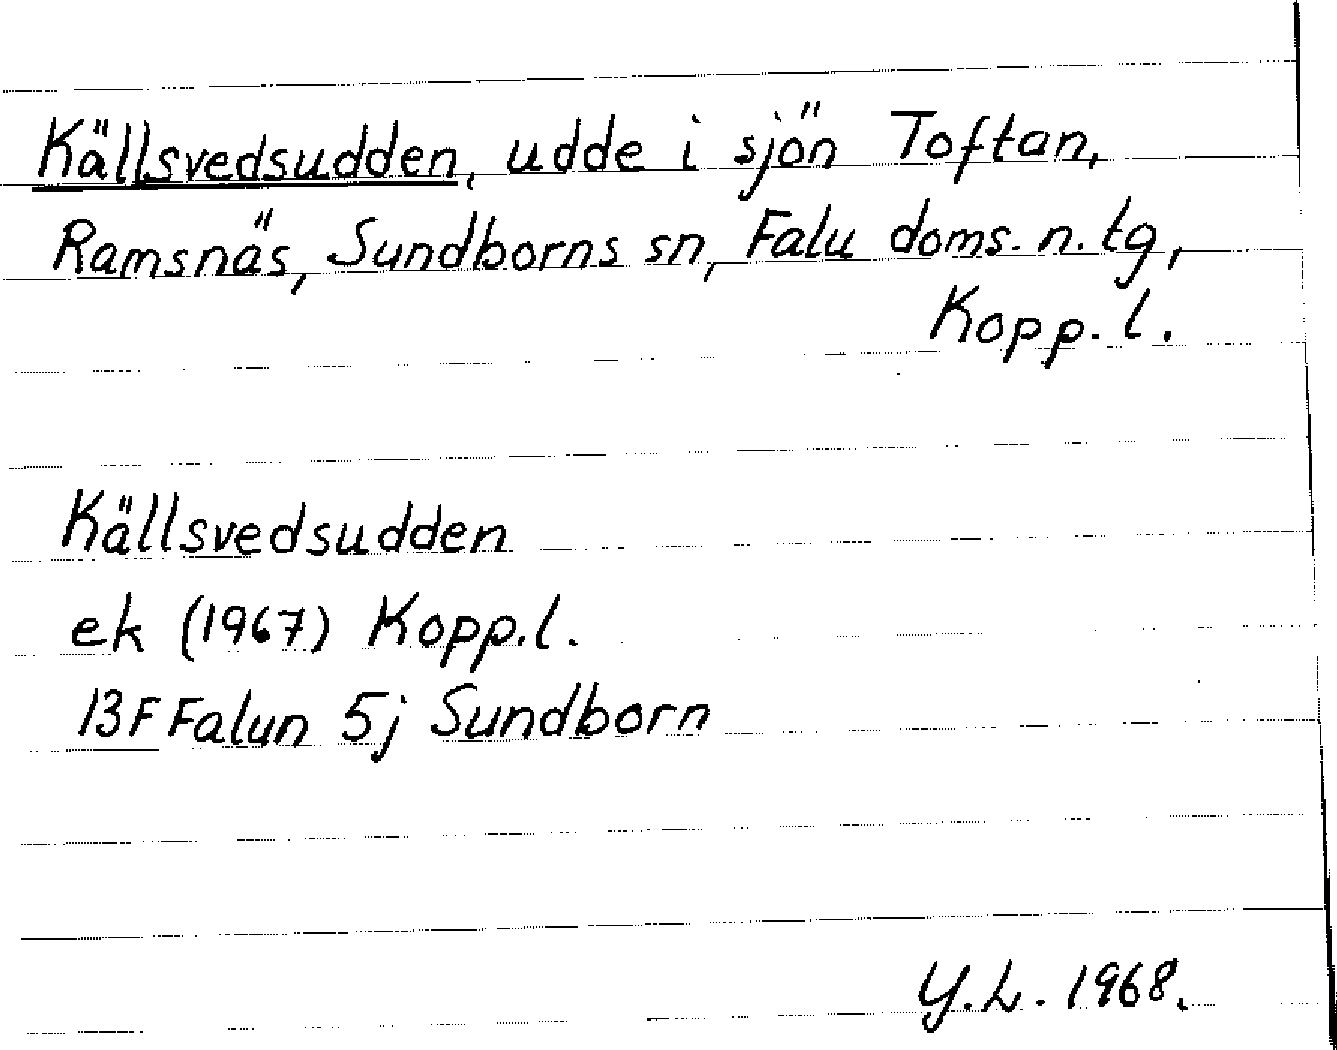 Källsvedsudden, udde i sjön Toftan,
Ramsnäs, Sundborns sn, Falu doms. n. tg,
Kopp. l.
Källsvedsudden
ek (1967) Kopp.l.
13F Falun 5j Sundborn
Y.L. 1968.